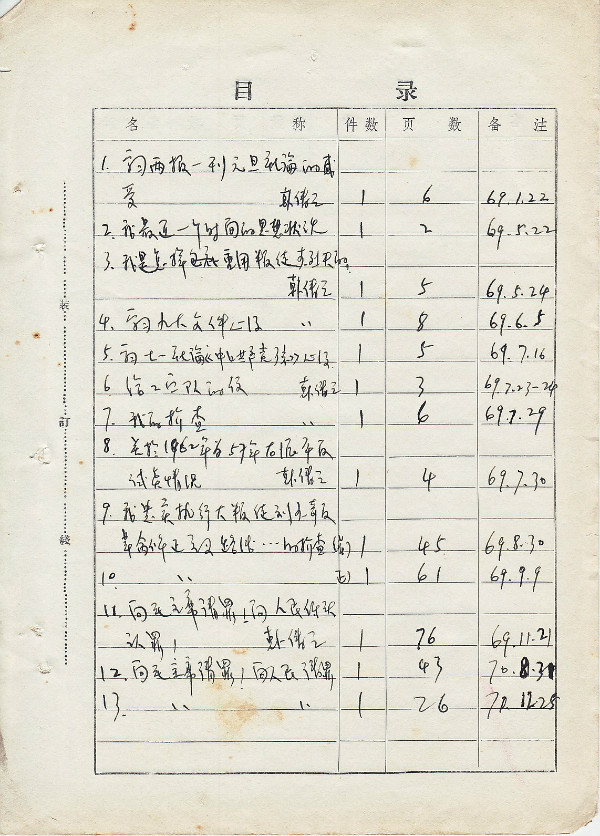 目 录
名 称 件数 页 数 备 注
1. 学习两报一刊元旦社论的感
受 韩儒三 1 6 69.1.22
2. 我最近一个时间的思想状况 1 2 69.5.22
3. 我是怎样包庇重用叛徒 的
韩儒三 1 5 69.5.24
4. 学习九大文件心得 〃 1 8 69.6.5
5. 学习七一社论《中国共产党 》心得 1 5 69.7.16
6. 给工宣队的信 韩儒三 1 3 69.7.23-24
7. 我的检查 〃 1 6 69.7.29
8. 关于1962年为57年右派平反
试点情况 韩儒三 1 4 69.7.30
9. 我忠实执行大叛徒刘少奇反
革命修正主义路线……的检查 1 45 69.8.30
10 〃 1 61 69.9.9
11. 向毛主席请罪！向人民低头
认罪！ 韩儒三 1 76 69.11.21
12. 向毛主席请罪！向人民请罪 1 43 70.8.31
13. 〃 〃 1 26 70.12.25
装
訂
綫